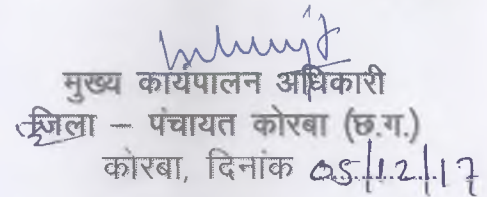 मुख्य कार्यपालन अधिकारी
जिला – पंचायत कोरबा (छ.ग.)
कोरबा, दिनांक 05/12/17